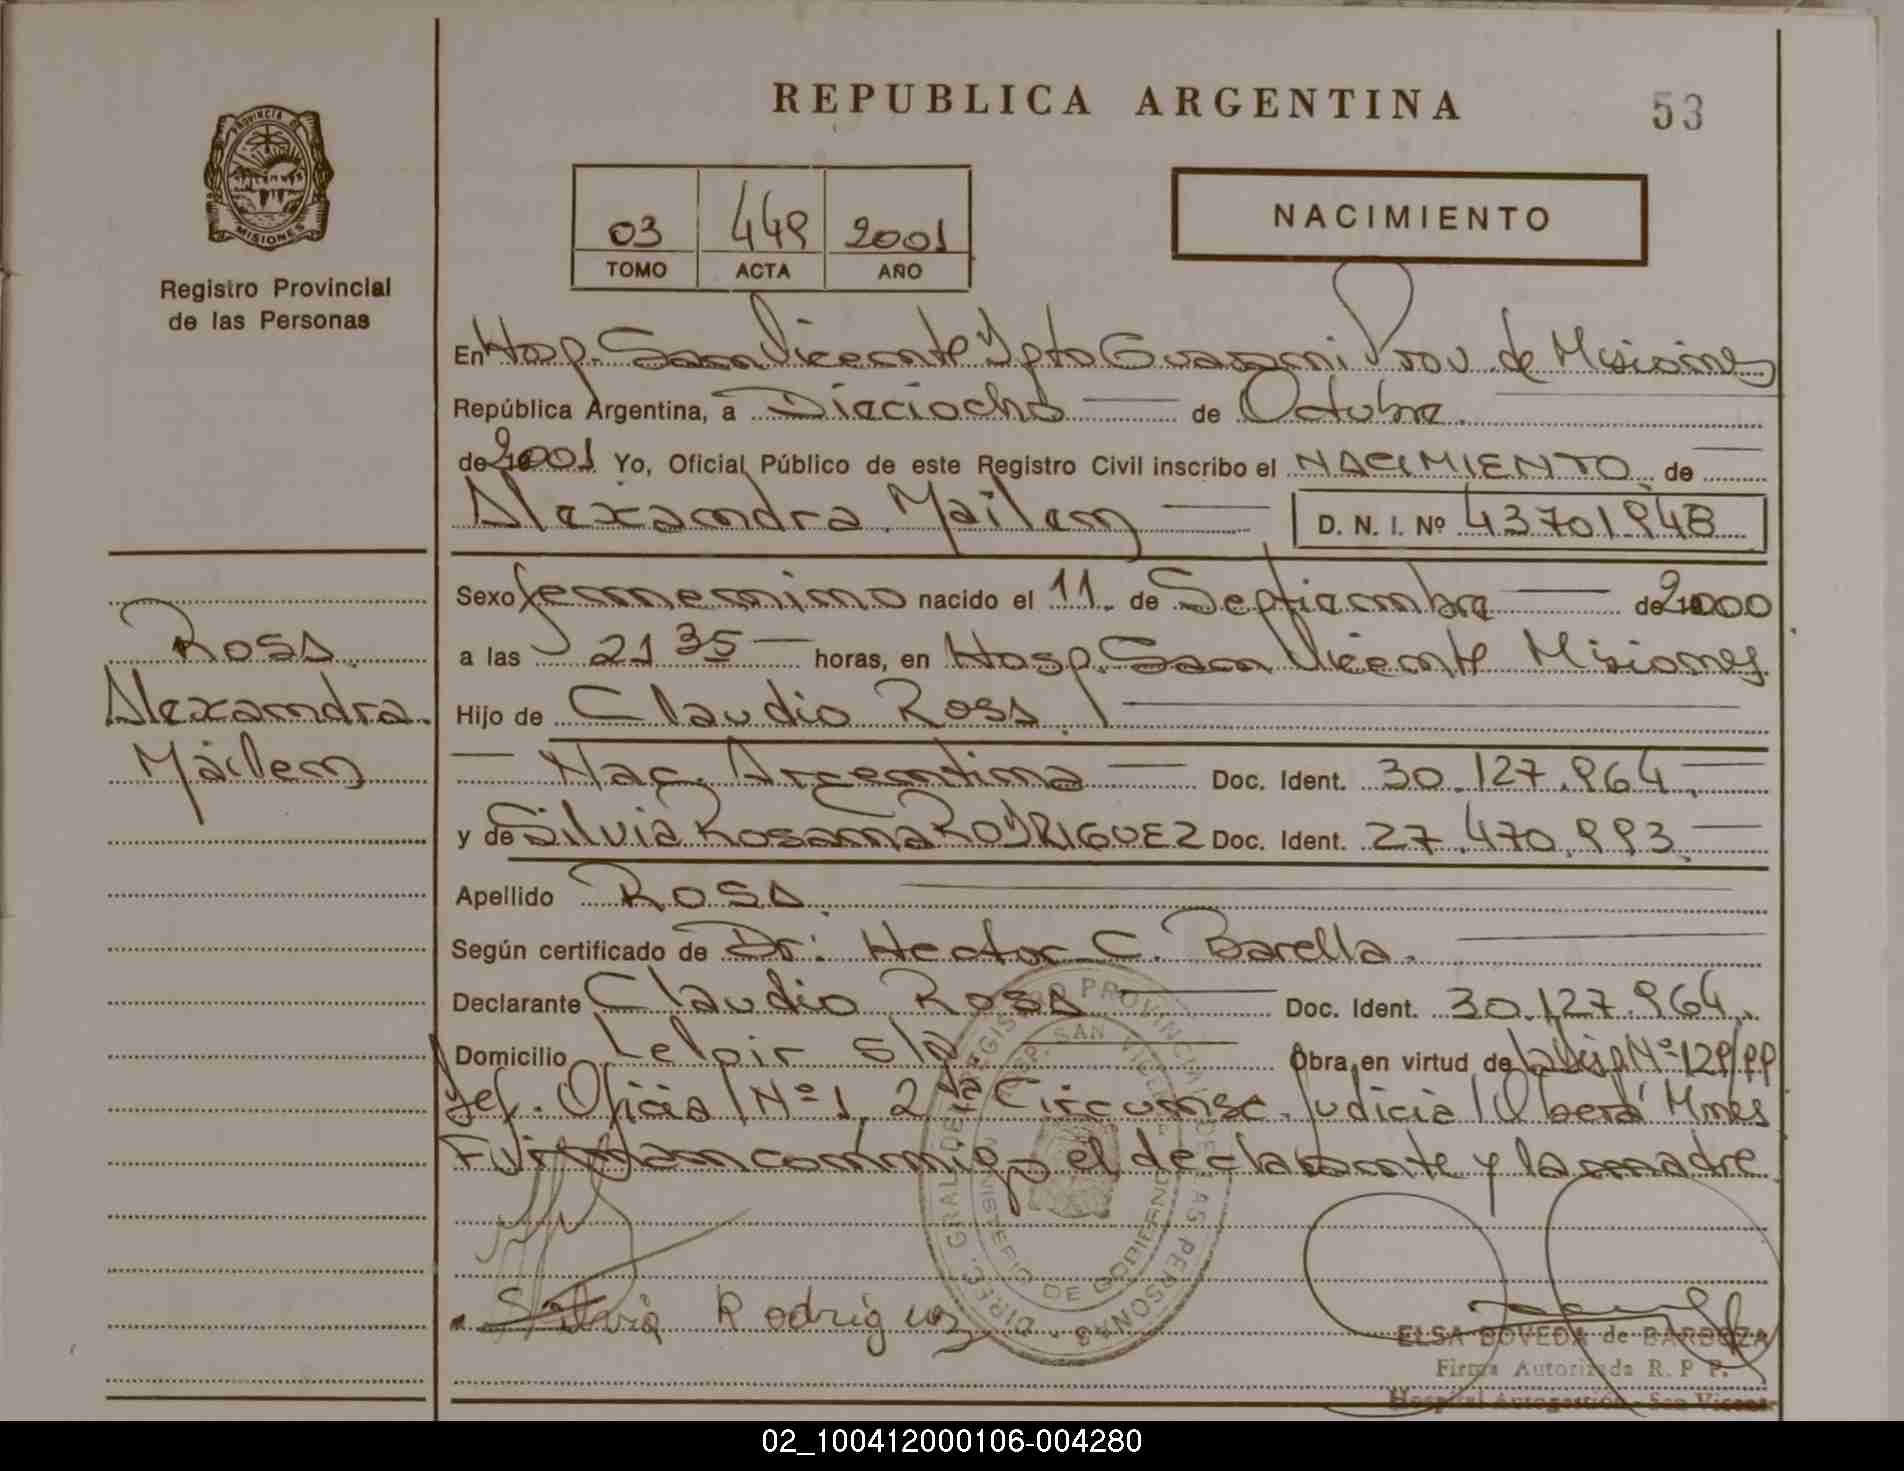 REPUBLICA ARGENTINA
53
PROVINCIA DE
MISIONES
Registro Provincial
de las Personas
03 449 2001
TOMO ACTA AÑO
NACIMIENTO
En Hosp. San Vicente Dpto Guarani Prov. de Misiones
República Argentina, a Dieciocho de Octubre
de 2001 Yo, Oficial Público de este Registro Civil inscribo el NACIMIENTO de
Alexandra Mailen D. N. I. Nº 43701948
Sexo femenino nacido el 11 de Septiembre de 2000
a las 21 35 horas, en Hosp. San Vicente Misiones
Hijo de Claudio Rosa
Nac. Argentina Doc. Ident. 30.127.964
y de Silvia Rosana RODRIGUEZ Doc. Ident. 27.470.993
Apellido Rosa
Según certificado de Dr: Hector C. Barella
Declarante Claudio Rosa Doc. Ident. 30.127.964
Domicilio Leloir s/n Obra en virtud de Nº 129/99
Def. Oficial Nº 1, 2da Circunsc. Judicial Oberá Mnes
Firman conmigo el declarante y la madre
Silvia Rodriguez
DIREC. GRAL. DEL REGISTRO PROVINCIAL DE LAS PERSONAS
HOSP. SAN VICENTE
MINISTERIO DE GOBIERNO
ELSA BOVEDA de BARBOZA
Firma Autorizada R. P P.
Hospital Autogestión - San Vicente
Rosa
Alexandra
Mailen
02_100412000106-004280